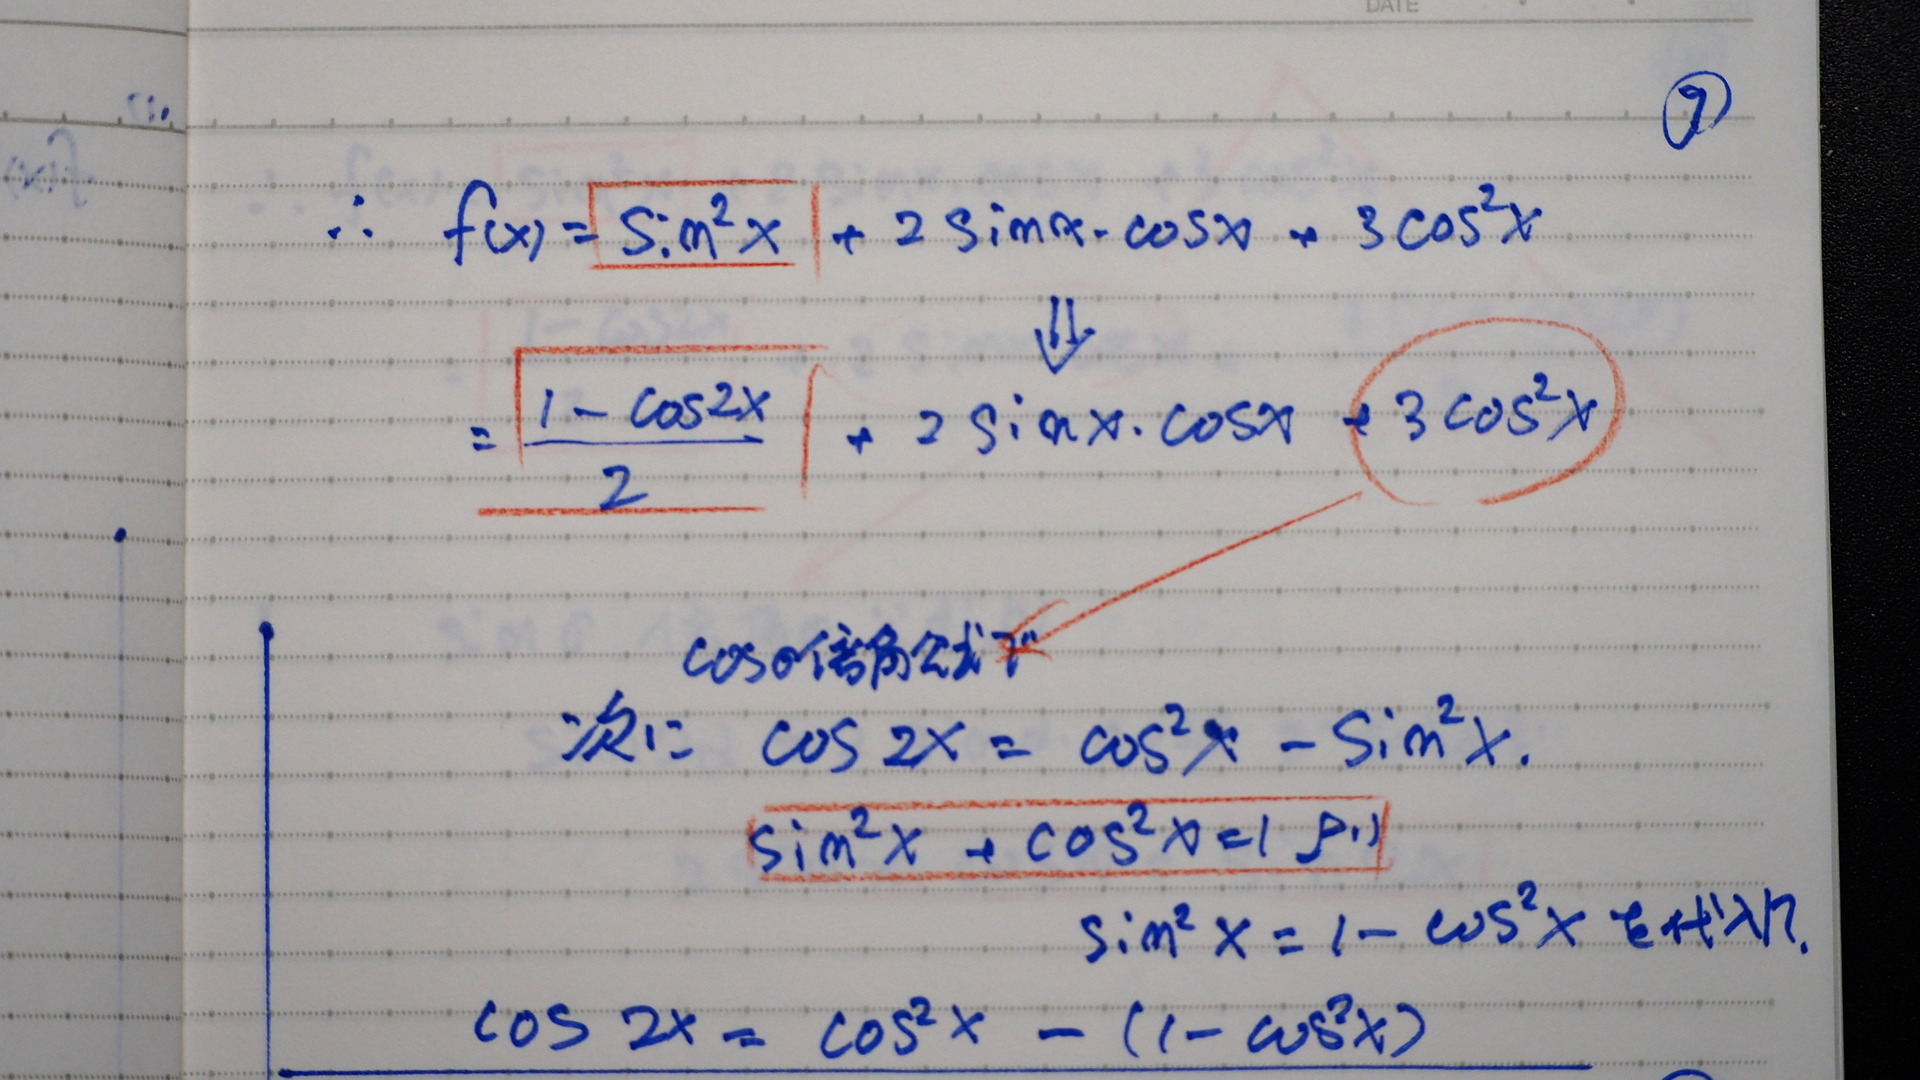 DATE
⑦
∴ f(x) = sin²x + 2 sinx・cosx + 3cos²x
⇓
= (1 - cos2x)/2 + 2 sinx・cosx + 3cos²x
cosの倍角公式で
次に cos 2x = cos²x - sin²x.
sin²x + cos²x = 1 より
sin²x = 1 - cos²x を代入.
cos 2x = cos²x - (1 - cos²x)